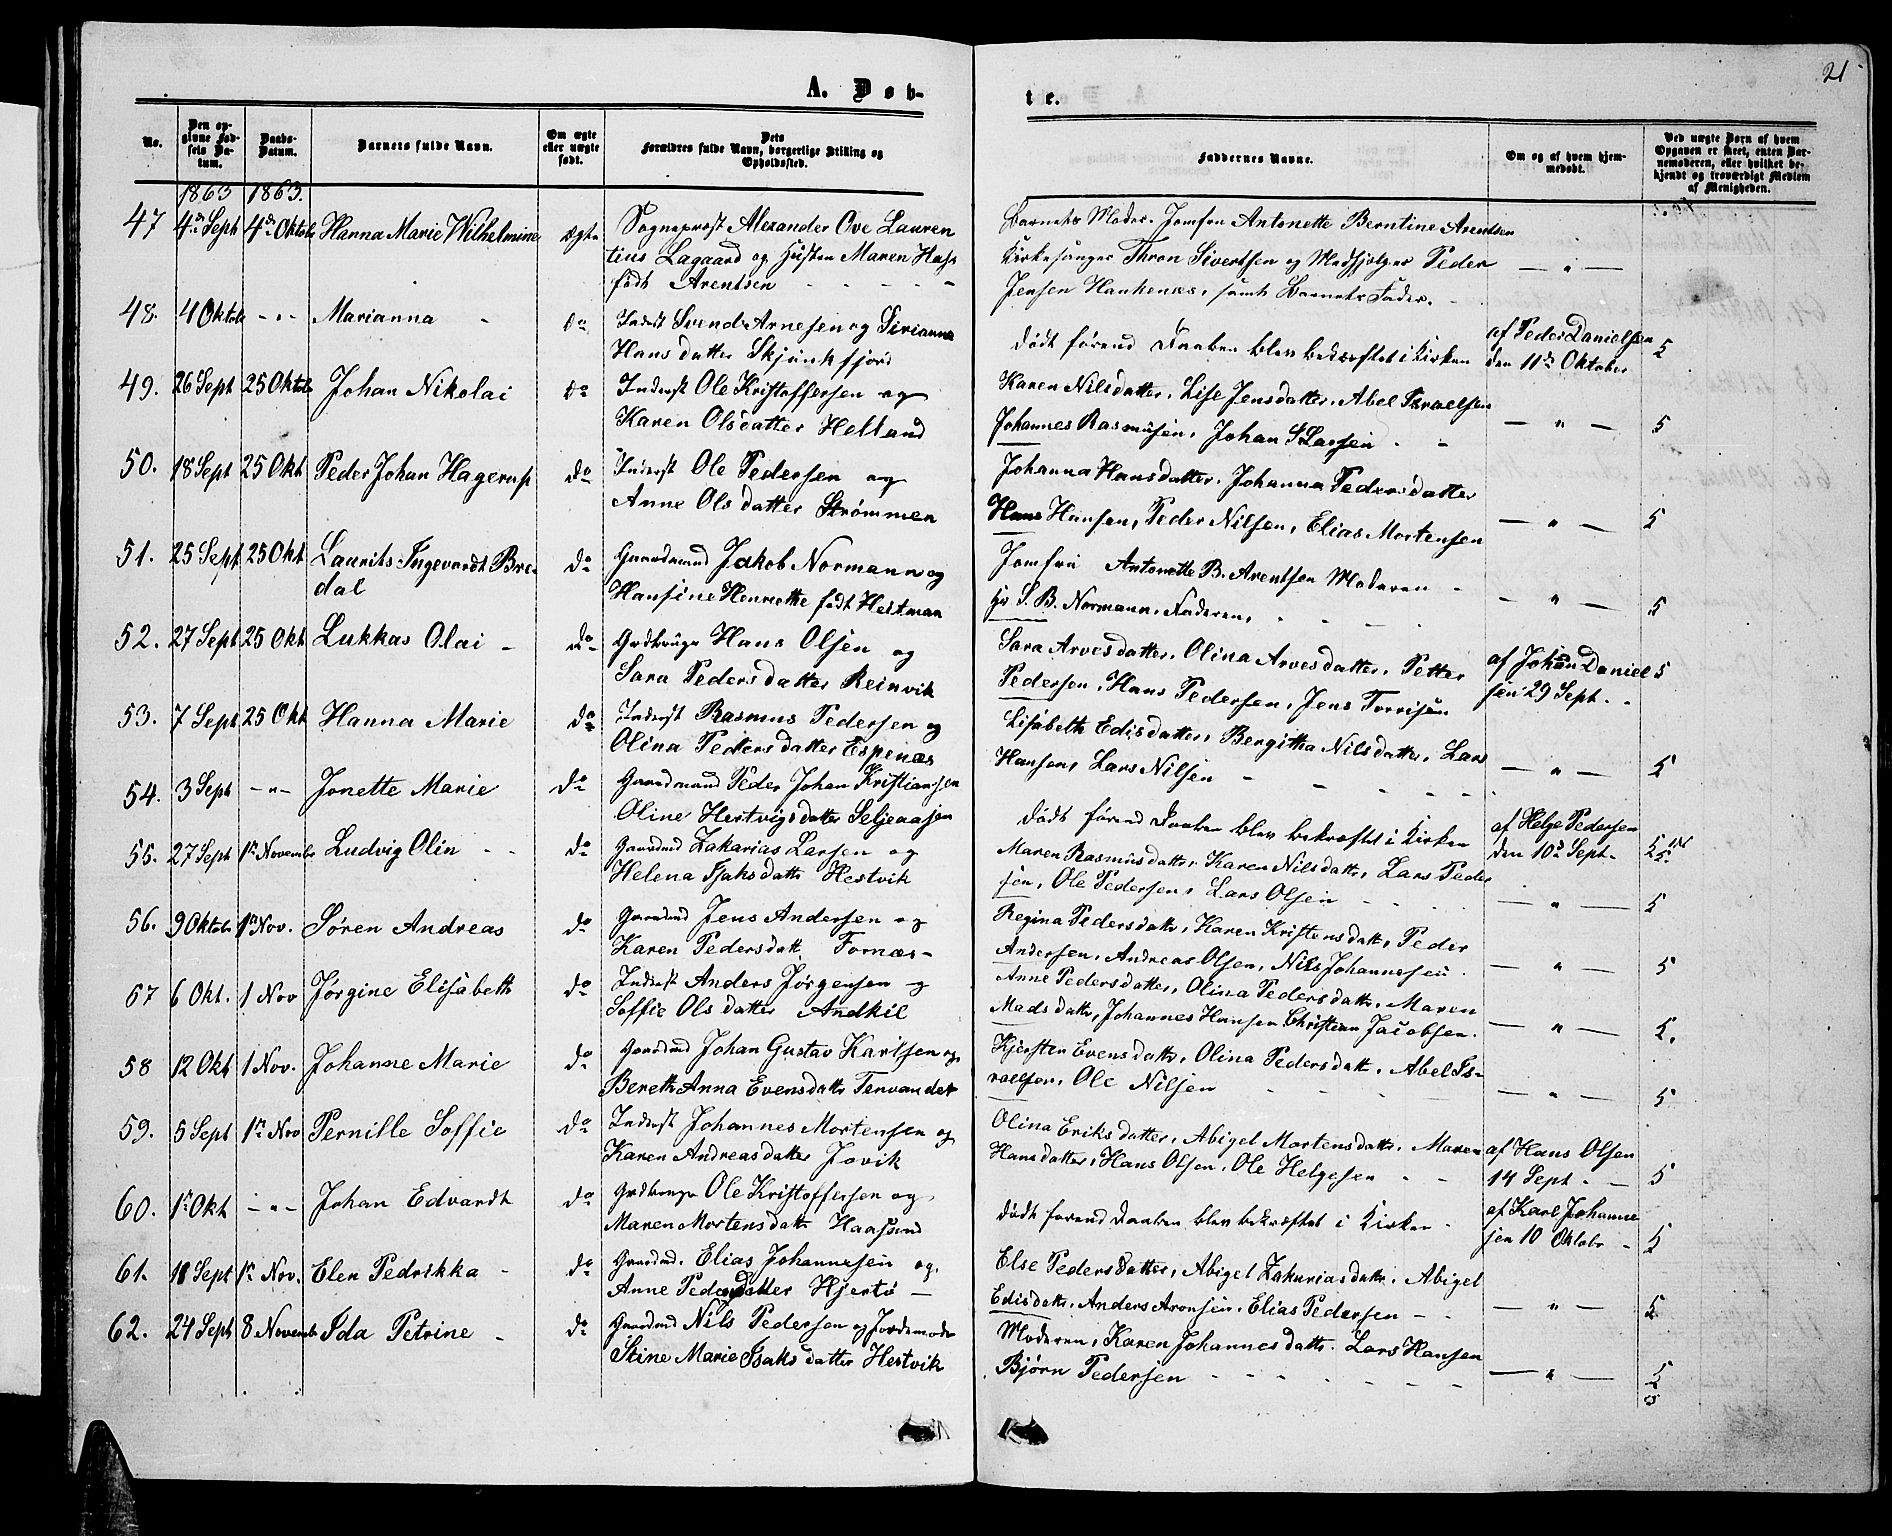 21
A. Døb-
te.
No.
Den op-
givne Fød-
sels Da-
tum.
Daabs-
Datum.
Barnets fulde Navn.
Om ægte
eller uægte
født.
Dets
Forældres fulde Navn, borgerlige Stilling og
Opholdssted.
Faddernes Navne.
Om og af hvem hjem-
medøbt.
Ved uægte Børn af hvem
Opgaven er skeet, enten Bar-
nemoderen, eller hvilket be-
kjendt og troværdigt Medlem
af Menigheden.
1863 1863.
47 4de Sept 4de Oktob Hanna Marie Wilhelmine ægte Sogneprest Alexander Ove Lauren
tius Lagaard og Hustru Maren
født Arentsen
Barnets Moder. Jomfru Antonette Berntine Arentsen
Kirkesanger Thron Sivertsen og Medhjælper Peder
Jensen Hankenæs, samt Barnets Fader.
48. 4 Oktob — " — Marianna do Inderst Svend Arnesen og Sirianna
Hansdatter Skjånkfjord
Dødt førend Daaben blev bekræftet i Kirken
af Peder Danielsen
den 11te Oktober 5
49. 26 Sept 25 Oktob Johan Nikolai do Inderst Ole Kristoffersen og
Karen Olsdatter Helland
Karen Nilsdatter, Lise Jensdatter, Abel Israelsen
Johannes Rasmusen, Johan S Larsen — " — 5
50. 18 Sept 25 Okt Peder Johan Hagerup do Inderst Ole Pedersen og
Anne Olsdatter Strømmen
Johanna Hansdatter, Johanna Pedersdatter
Hans Hansen, Peder Nilsen, Elias Mortensen — " — 5
51. 25 Sept 25 Okt Laurits Ingevardt Bre-
dal do Gaardmand Jakob Normann og
Hansine Henriette født Heitman
Jomfru Antonette B. Arentsen Moderen
Hr S. B. Normann, Faderen, — " — 5
52. 27 Sept 25 Okt Lukkas Olai do Grdbruger Hans Olsen og
Sara Pedersdatter Reinvik
Sara Arvesdatter, Olina Arvesdatter, Petter
Pedersen, Hans Pedersen, Jens Torrisen
af Johan Daniel
sen 29 Sept. 5
53. 7 Sept 25 Okt Hanna Marie do Inderst Rasmus Pedersen og
Olina Pedersdatter Espenæs
Lisabeth Edisdatter, Bergitha Nilsdatter, Lars
Hansen, Lars Nilsen — " — 5
54. 3 Sept — " — Jonette Marie do Gaardmand Peder Johan Kristiansen
Oline Hertvigsdatter Seljeaasen
Dødt førend Daaben blev bekræftet i Kirken
af Helge Pedersen
den 10de Sept.
55. 27 Sept 1ste Novemb Ludvig Olin do Gaardmd Zakarias Larsen og
Helena Isaksdatt Hestvik
Maren Rasmusdatter, Karen Nilsdatt, Lars Peder
sen, Ole Pedersen, Lars Olsen — " — 5
56. 9 Oktob 1ste Nov. Søren Andreas do Gaardmd Jens Andersen og
Karen Pedersdatt Fornæs
Regina Pedersdatt, Karen Kristensdatt, Peder
Andersen, Andreas Olsen, Nils Johannesen — " — 5
57 6 Okt. 1 Nov Jørgine Elisabeth do Inderst Anders Jørgensen og
Soffie Olsdatter Andkil
Anne Pedersdatter, Olina Pedersdatt, Maren
Madsdatt, Johannes Hansen Christian Jacobsen. — " — 5.
58 12 Okt 1 Nov. Johanne Marie do Gaardmd Johan Gustav Karlsen og
Bereth Anna Evensdatt Tenvandet
Kjersten Evensdatt, Olina Pedersdatt, Abel Is-
raelsen, Ole Nilsen — " — 5
59. 5 Sept 1ste Nov Pernille Soffie do Inderst Johannes Mortensen og
Karen Andreasdatter Jøvik
Olina Eriksdatter, Abigel Mortensdatt, Maren
Hansdatter, Hans Olsen, Ole Helgesen
af Hans Olsen
14 Sept. — 5
60. 1ste Okt — " — Johan Edvardt do Grdbruger Ole Kristoffersen og
Maren Mortensdatt Haasund
Dødt førend Daaben blev bekræftet i Kirken
af Karl Johanne
sen 10 Oktobr 5
61. 18 Sept 1ste Nov. Elen Pedrikka do Gaardmd. Elias Johannesen og
Anne Pedersdatter Hjertø
Else Pedersdatter, Abigel Zakariasdatt, Abigel
Edisdatt, Anders Aronsen, Elias Pedersen — " — 5
62. 24 Sept 8 Novemb Ida Petrine do Gaardmd Nils Pedersen og Jordemoder
Stine Marie Isaksdatter Hestvik
Moderen, Karen Johannesdatt. Lars Hansen
Bjørn Pedersen — " — 5